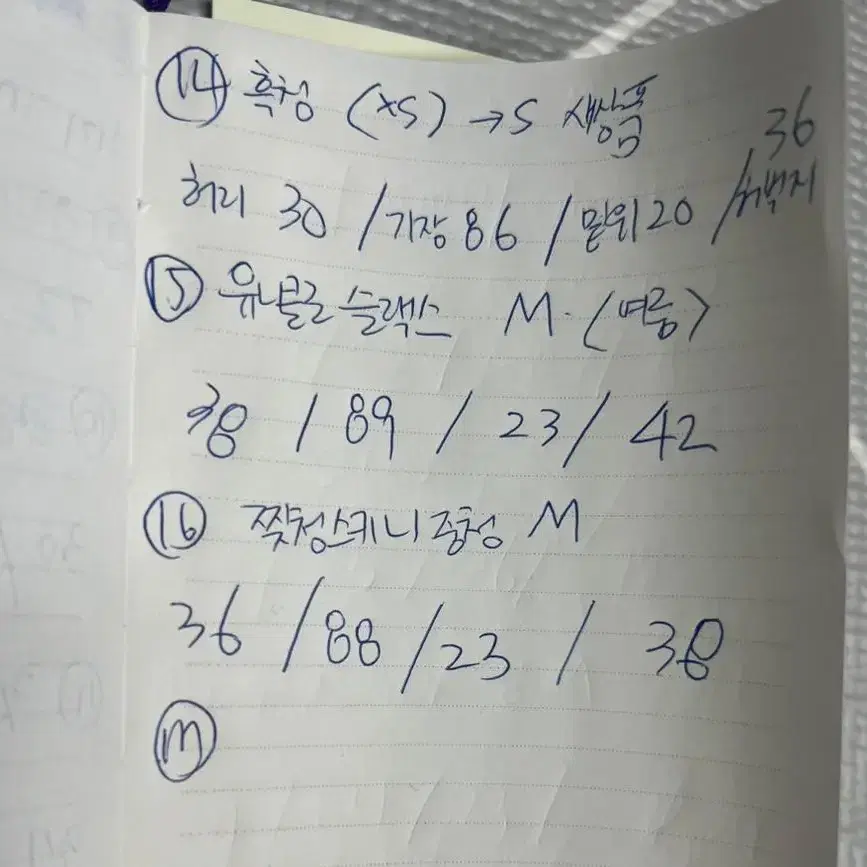 ⑭ 흑청 (XS) → S 새상품
허리 30 / 기장 86 / 밑위 20 / 허벅지 36
⑮ 유니클로 슬랙스 M. (여름)
38 / 89 / 23 / 42
⑯ 찢청스키니 중청 M
36 / 88 / 23 / 38
⑰